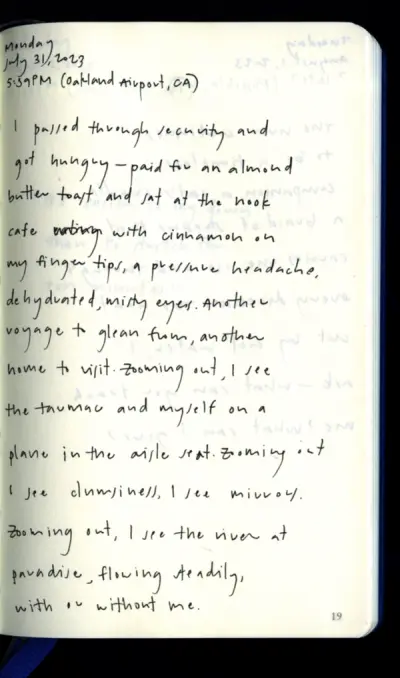 Monday
July 31, 2023
5:39PM (Oakland Airport, CA)
I passed through security and
got hungry — paid for an almond
butter toast and sat at the nook
cafe with cinnamon on
my finger tips, a pressure headache,
dehydrated, misty eyes. Another
voyage to glean from, another
home to visit. Zooming out, I see
the tarmac and myself on a
plane in the aisle seat. Zooming out
I see clumsiness, I see mirrors.
Zooming out, I see the river at
paradise, flowing steadily,
with or without me.
19